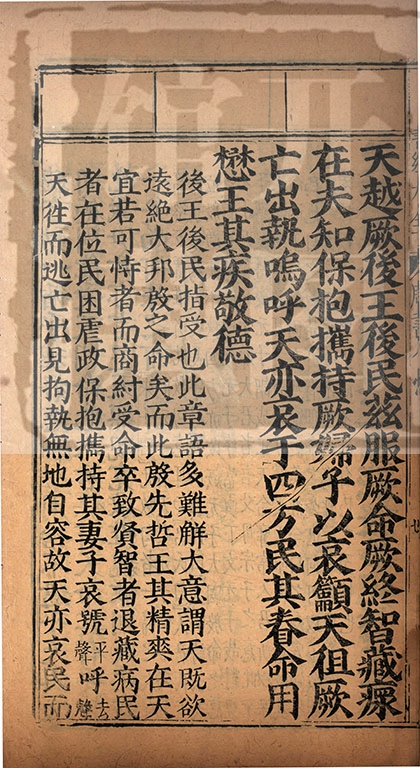 天越厥後王後民茲服厥命厥終智藏瘝
在夫知保抱攜持厥婦子以哀籲天徂厥
亡出執嗚呼天亦哀于四方民其眷命用
懋王其疾敬德
後王後民指受也此章語多難解大意謂天既欲
遠絕大邦殷之命矣而此殷先哲王其精爽在天
宜若可恃者而商紂受命卒致賢智者退藏病民
者在位民困虐政保抱攜持其妻子哀號平聲呼去聲
天徃而逃亡出見拘執無地自容故天亦哀民而